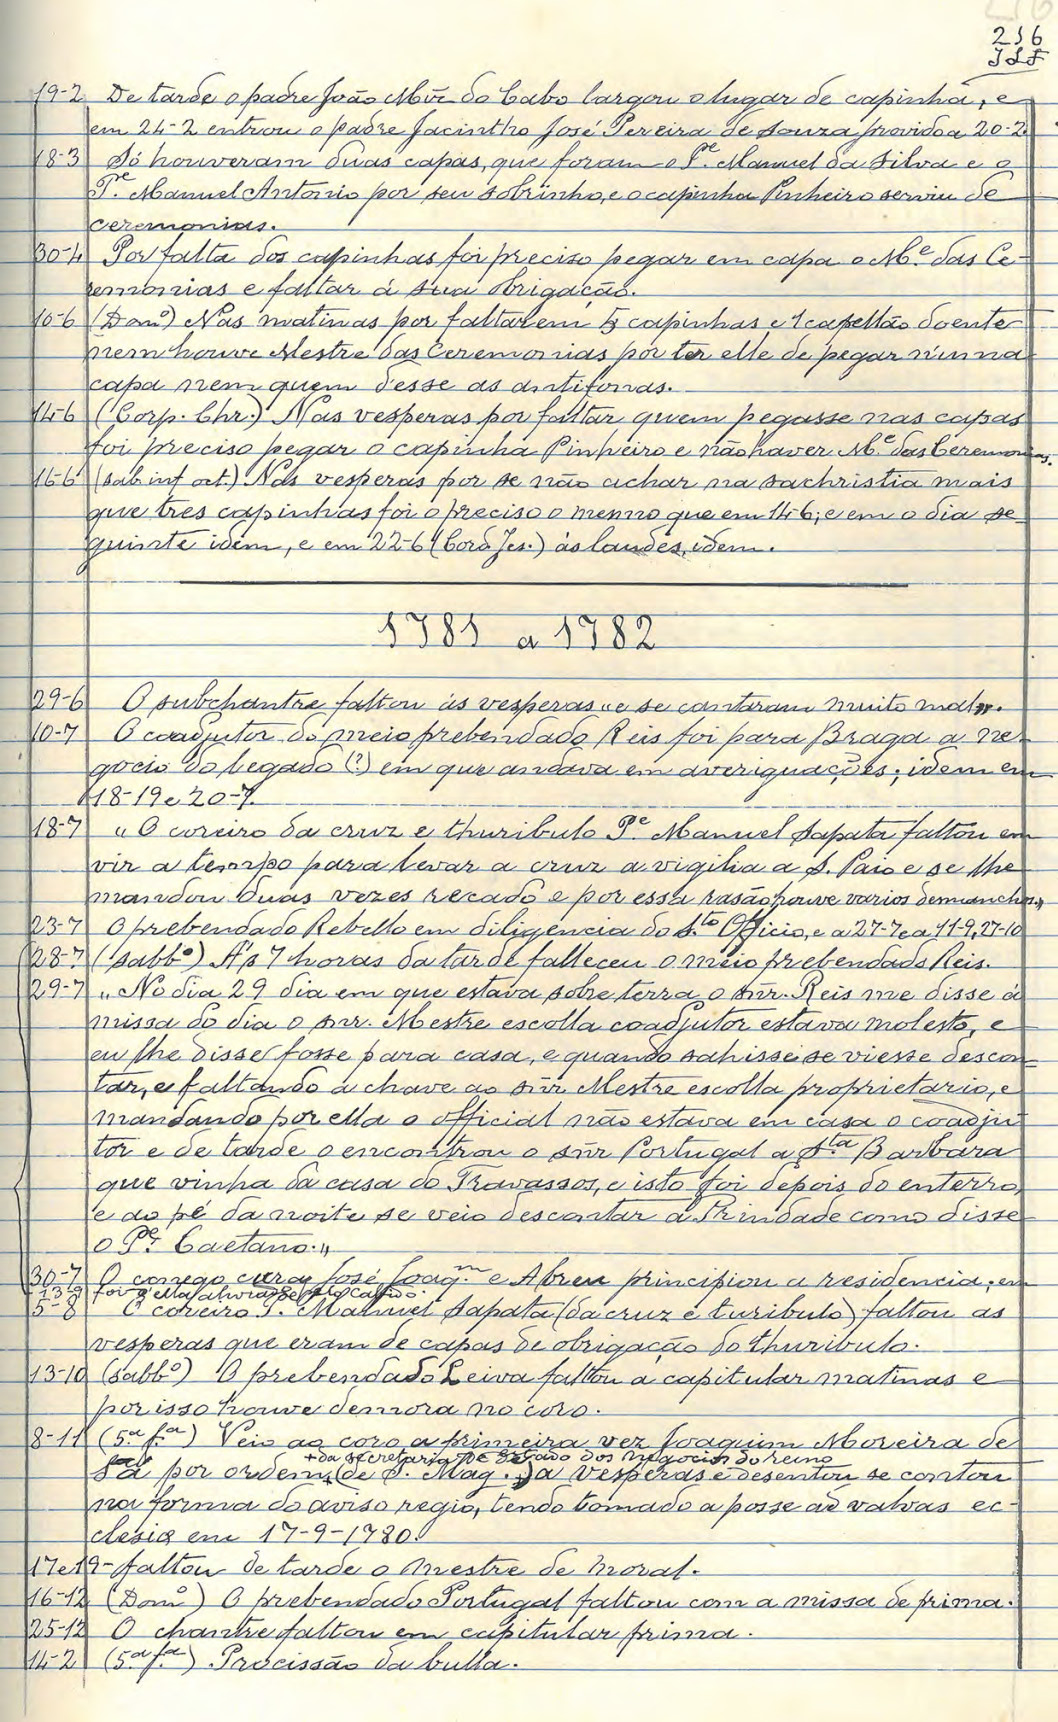 216
19-2 De tarde o padre João Mĩz do Cabo largou o lugar de capinha, e
em 24-2 entrou o padre Jacintho José Pereira de Souza provido a 20-2.
18-3 Só houveram duas capas, que foram o Pe. Manuel da Silva e o
Pe. Manuel Antonio por seu sobrinho, e o capinha Pinheiro serviu de
ceremonias.
30-4 Por falta dos capinhas foi preciso pegar em capa o Me. das Ce-
remonias e faltar á sua obrigação.
10-6 (Domo) Nas matinas por faltarem 5 capinhas e 1 capellão doente
nem houve Mestre das Ceremonias por ter elle de pegar n'uma
capa nem quem desse as antifonas.
14-6 (Corp. Chr.) Nas vesperas por faltar quem pegasse nas capas
foi preciso pegar o capinha Pinheiro e não haver Me. das Ceremonias.
16-6 (sab. inf. oct.) Nas vesperas por se não achar na sachristia mais
que tres capinhas foi o preciso o mesmo que em 14-6; e em o dia se-
guinte idem, e em 22-6 (Cor. Jes.) ás laudes, idem.
1781 a 1782
29-6 O subchantre faltou ás vesperas "e se cantaram muito mal".
10-7 O coadjutor do meio prebendado Reis foi para Braga a ne-
gocio do legado (?) em que andava em averiguações; idem em
18-19 e 20-7.
18-7 "O coreiro da cruz e thuribulo Pe. Manuel Sapata faltou em
vir a tempo para levar a cruz a vigilia a S. Paio e se lhe
mandou duas vezes recado e por essa rasão houve varios demanchos"
23-7 O prebendado Rebello em diligencia do Sto Officio, e a 27-7 e a 11-9, 27-10
28-7 (sabbo) Ás 7 horas da tarde falleceu o meio prebendado Reis.
29-7 "No dia 29 dia em que estava sobre terra o snr. Reis me disse á
missa do dia o snr. Mestre escolla coadjutor estava molesto, e
eu lhe disse fosse para casa, e quando sahisse se viesse descon-
tar, e faltando a chave ao snr Mestre escolla proprietario, e
mandando por ella o official não estava em casa o coadju-
tor e de tarde o encontrou o snr Portugal a Sta Barbara
que vinha da casa do Travassos, e isto foi depois do enterro,
e ao pé da noite se veio descontar á Trindade como disse
o Pe. Caetano."
30-7 O conego cura José Joaqm. e Abreu principiou a residencia; em
13-9 foi
5-8 O coreiro P. Manuel Sapata (da cruz e turibulo) faltou as
vesperas que eram de capas de obrigação do thuribulo.
13-10 (sabbo) O prebendado Leiva faltou a capitular matinas e
por isso houve demora no côro.
8-11 (5.a f.a) Veio ao coro a primeira vez Joaquim Moreira de
+ da secretaria de Estado dos Negocios do reino
Sá por ordem + (de S. Mag.) a vesperas e desentou se contou
na forma do aviso regio, tendo tomado a posse ad valvas ec-
clesiæ em 17-9-1780.
17 e 19- faltou de tarde o mestre de moral.
16-12 (Domo) O prebendado Portugal faltou com a missa de prima.
25-12 O chantre faltou em capitular prima.
14-2 (5.a f.a) Procissão da bulla.